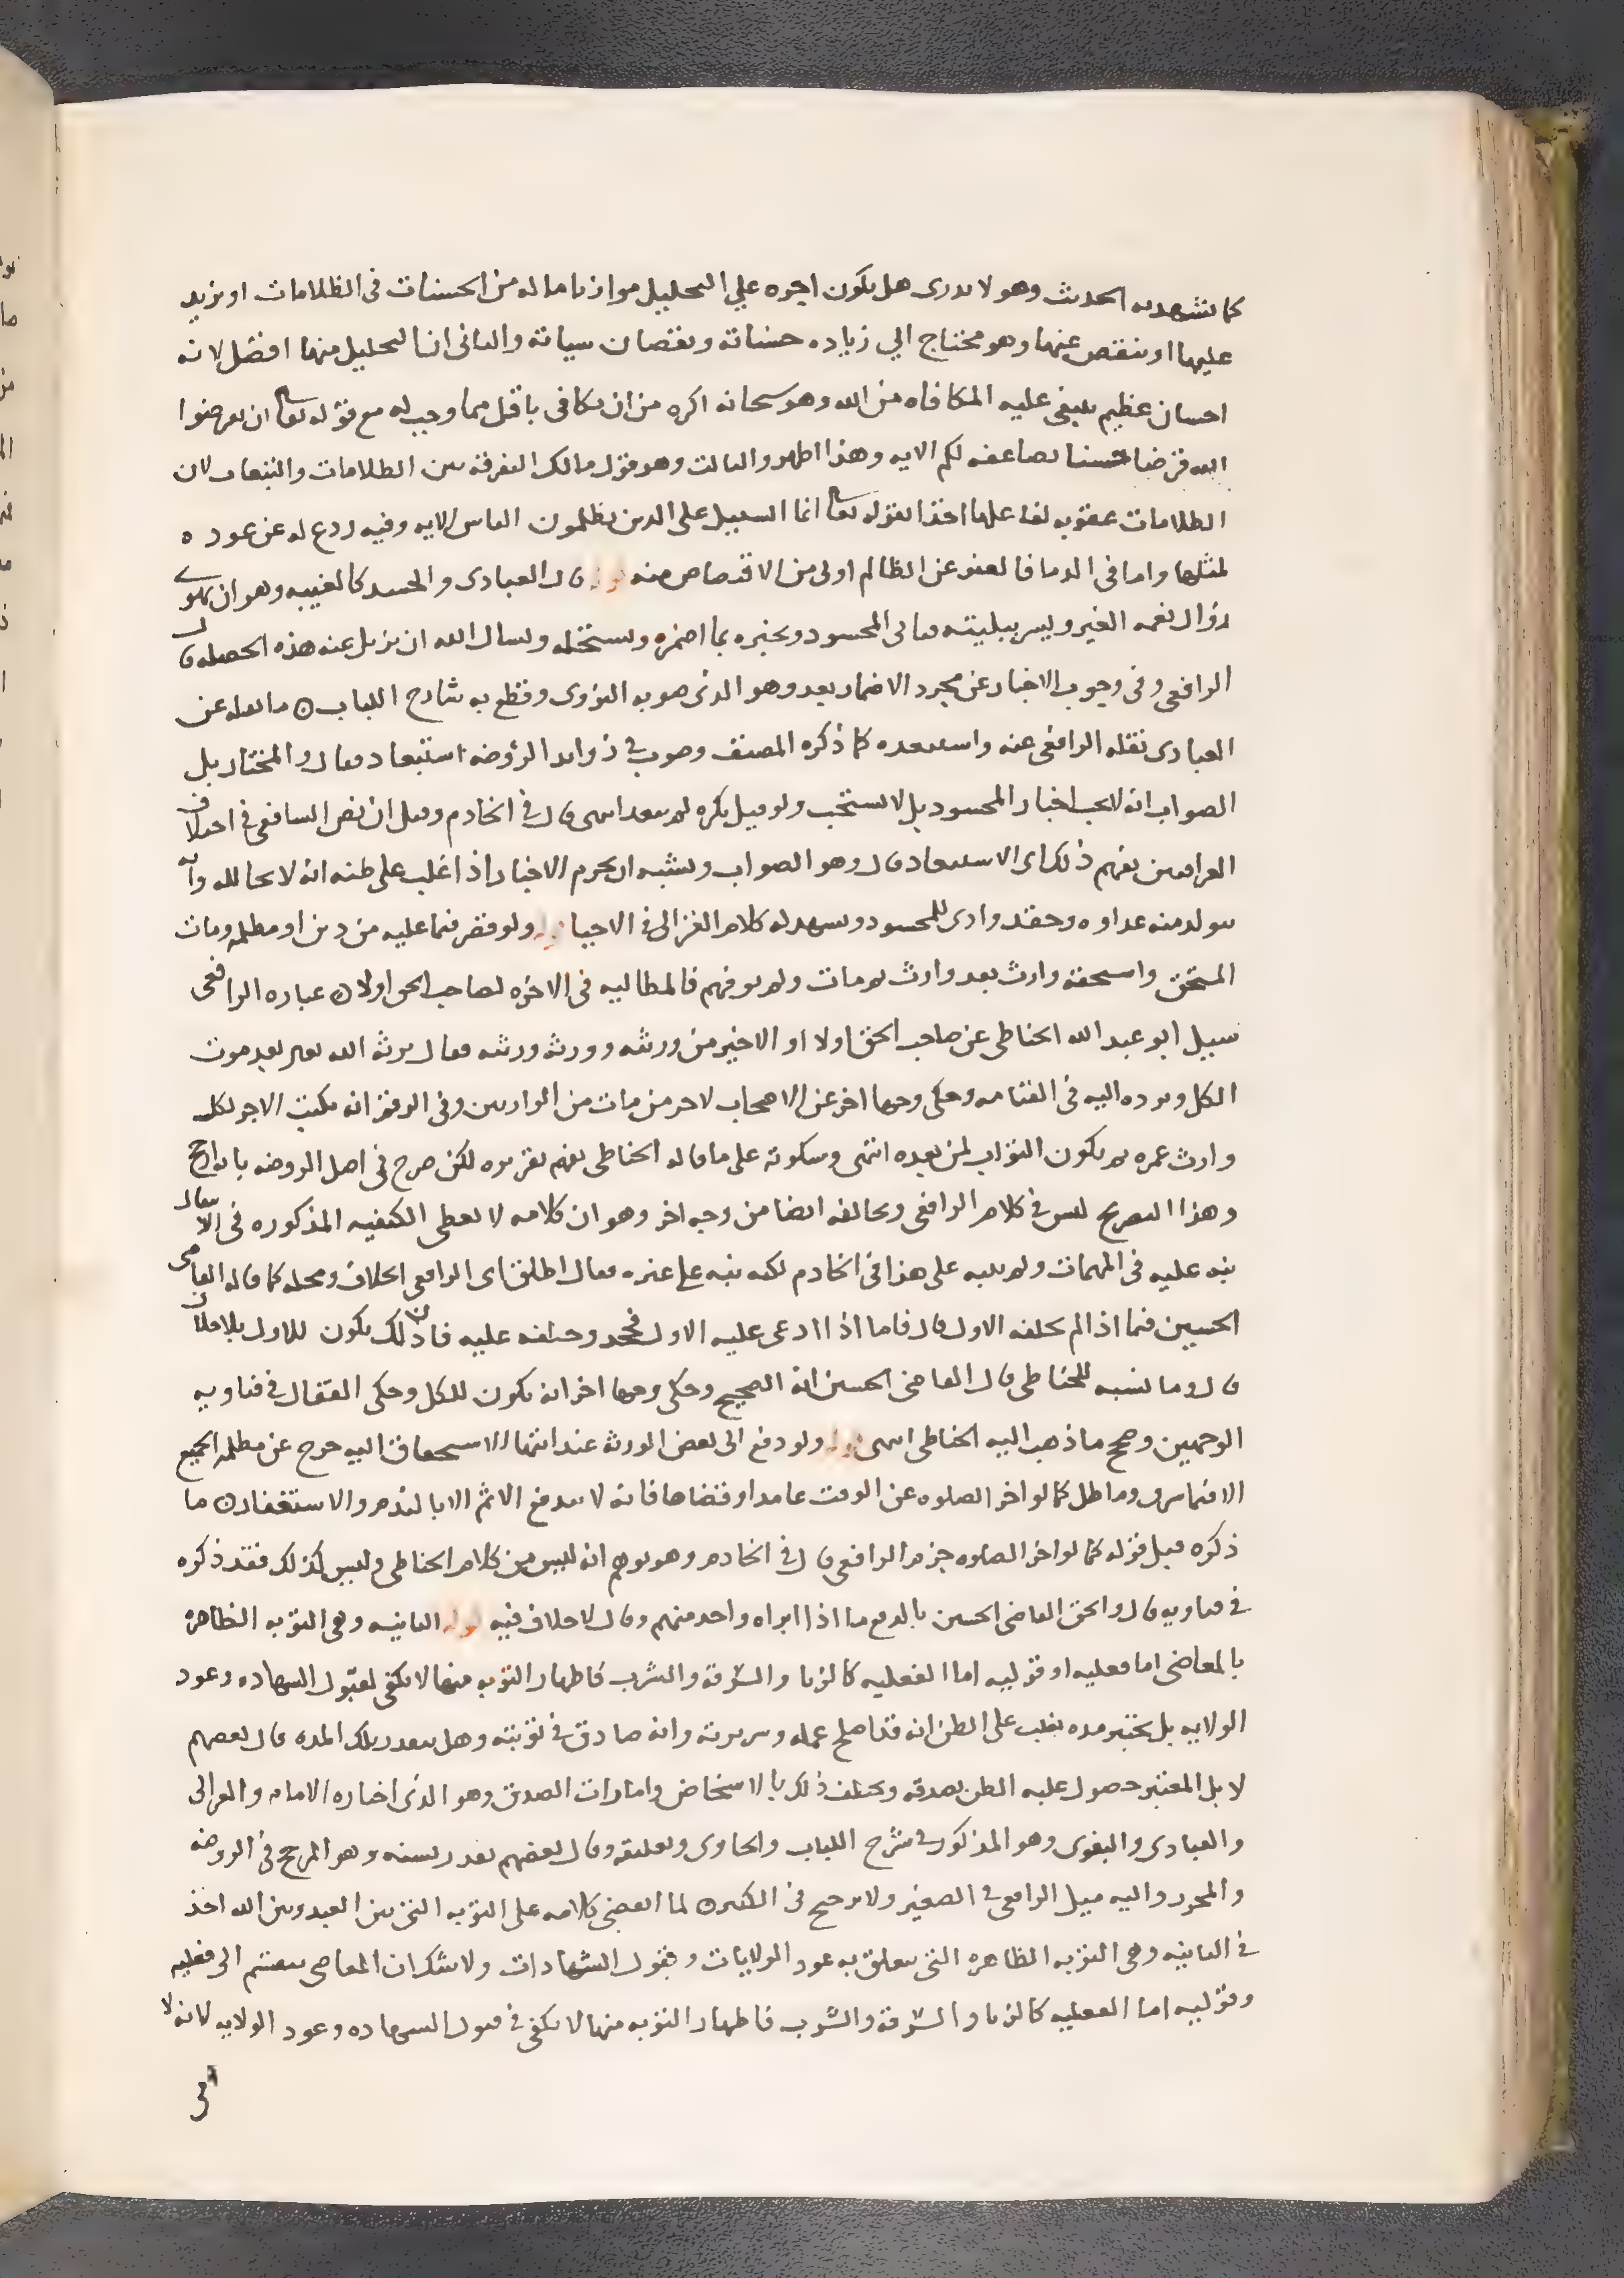 كما يشهد به الحديث وهو لا يدرى هل يكون اجره علي التحليل موازنا ماله من الحسنات في الظلامات او يزيد
عليها او ينقص عنها وهو محتاج الي زياده حسناته ونقصان سياته والثانى ان التحليل منها افضل لانه
احسان عظيم يبتغى عليه المكافاه من الله وهو سبحانه اكرم من ان يكافى باقل مما وجب له مع قوله تعالى ان تقرضوا
الله قرضا حسنا يضاعفه لكم الايه وهذا اظهر والثالث وهو قول مالك التفرقة بين الظلامات والتبعات لان
الظلامات عقوبه لفاعلها اخذا بقوله تعالى انما السبيل على الذين يظلمون الناس الايه وفيه ردع له عن عوده
لمثلها واما في الدما فالعفو عن الظالم اولى من الاقتصاص منه قوله قال العبادى والحسد كالغيبه وهو ان يهوى
زوال نعمه الغير ويسر ببليته فياتى المحسود ويخبره بما اضمره ويستحله ويسال الله ان يزيل عنه هذه الخصله قال
الرافعى وفى وجوب الاخبار عن مجرد الاضمار بعد وهو الذى صوبه النووى وقطع به شارح اللباب ه ما نقله عن
العبادى نقله الرافعى عنه واستبعده كما ذكره المصنف وصوب في زوايد الروضه استبعاده فقال والمختار بل
الصواب انه لا يجب اخبار المحسود بل لا يستحب ولو قيل يكره لم يبعد انتهى قال في الخادم وقيل ان نص الشافعى في اختلاف
العراقيين يفهم ذلك اى الاستبعاد قال وهو الصواب ويشبه ان يحرم الاخبار اذا غلب على ظنه انه لا يحالله وانه
يتولد منه عداوه وحقد واذى للمحسود ويشهد له كلام الغزالى في الاحيا قوله ولو قصر فيما عليه من دين او مظلمه ومات
المستحق واستحقه وارث بعد وارث ثم مات ولم يوفهم فالمطالبه في الاخره لصاحب الحق اولا ه عباره الرافعى
سيل ابو عبد الله الحناطى عن صاحب الحق اولا او الاخير من ورثته وورثه ورثته فقال يرثه الله تعالى بعد موت
الكل ويرده اليه في القيامه وحكى وجها اخر عن الاصحاب لاخر من مات من الوارثين وفى الرقم انه يكتب الاجر لكل
وارث عمره ثم يكون الثواب لمن بعده انتهى وسكوته على ما قاله الحناطى يفهم تقريره لكن صرح في اصل الروضه بانه ارجح
وهذا التصريح ليس في كلام الرافعى ويخالفه ايضا من وجه اخر وهو ان كلامه لا يعطى الكيفيه المذكوره في الانتقال
نبه عليه في المهمات ولم ينبه على هذا في الخادم لكنه نبه على غيره فقال اطلق اى الرافعى الخلاف ومحله كما قاله القاضى
الحسين فيما اذا لم يحلفه الاول قال فاما اذا ادعى عليه الاول فجحد وحلفه عليه فان ذلك يكون للاول بلا خلاف
قال وما نسبه للحناطى قال القاضى الحسين انه الصحيح وحكى وجها اخر انه يكون للكل وحكى القفال في فتاويه
الوجهين وصحح ما ذهب اليه الحناطى انتهى قوله ولو دفع الى بعض الورثه عند انتها الاستحقاق اليه خرج عن مظلمه الجميع
الا فيما سوف وماطل كما لو اخر الصلوه عن الوقت عامدا وقضاها فانه لا يندفع الاثم الا بالندم والاستغفار ه ما
ذكره قبل قوله كما لو اخر الصلوه جزم الرافعى قال في الخادم وهو يوهم انه ليس من كلام الحناطى وليس كذلك فقد ذكره
في فتاويه قال والحق القاضى الحسين بالدفع ما اذا ابراه واحد منهم وقال لا خلاف فيه قوله الثانيه وهى التوبه الظاهره
بالمعاصى اما فعليه او قوليه اما الفعليه كالزنا والسرقه والشرب فاظهار التوبه منها لا يكفى لقبول الشهاده وعود
الولايه بل يختبر مده يغلب على الظن انه قد اصلح عمله وسريرته وانه صادق في توبته وهل يتقدر بتلك المده قال بعضهم
لا بل المعتبر حصول غلبه الظن بصدقه ويختلف ذلك بالاشخاص وامارات الصدق وهو الذى اختاره الامام والغزالى
والعبادى والبغوى وهو المذكور في شرح اللباب والحاوى وتعليقه وقال بعضهم يقدر بسنه وهو المرجح في الروضه
والمحرر واليه ميل الرافعى في الصغير ولا ترجيح في الكبير ه لما انقضى كلامه على التوبه التى بين العبد وبين الله اخذ
في الثانيه وهى التوبه الظاهره التى يتعلق به عود الولايات وقبول الشهادات ولا شك ان المعاصى تنقسم الى فعليه
وقوليه اما الفعليه كالزنا والسرقه والشرب فاظهار التوبه منها لا يكفى في قبول الشهاده وعود الولايه لانه لا